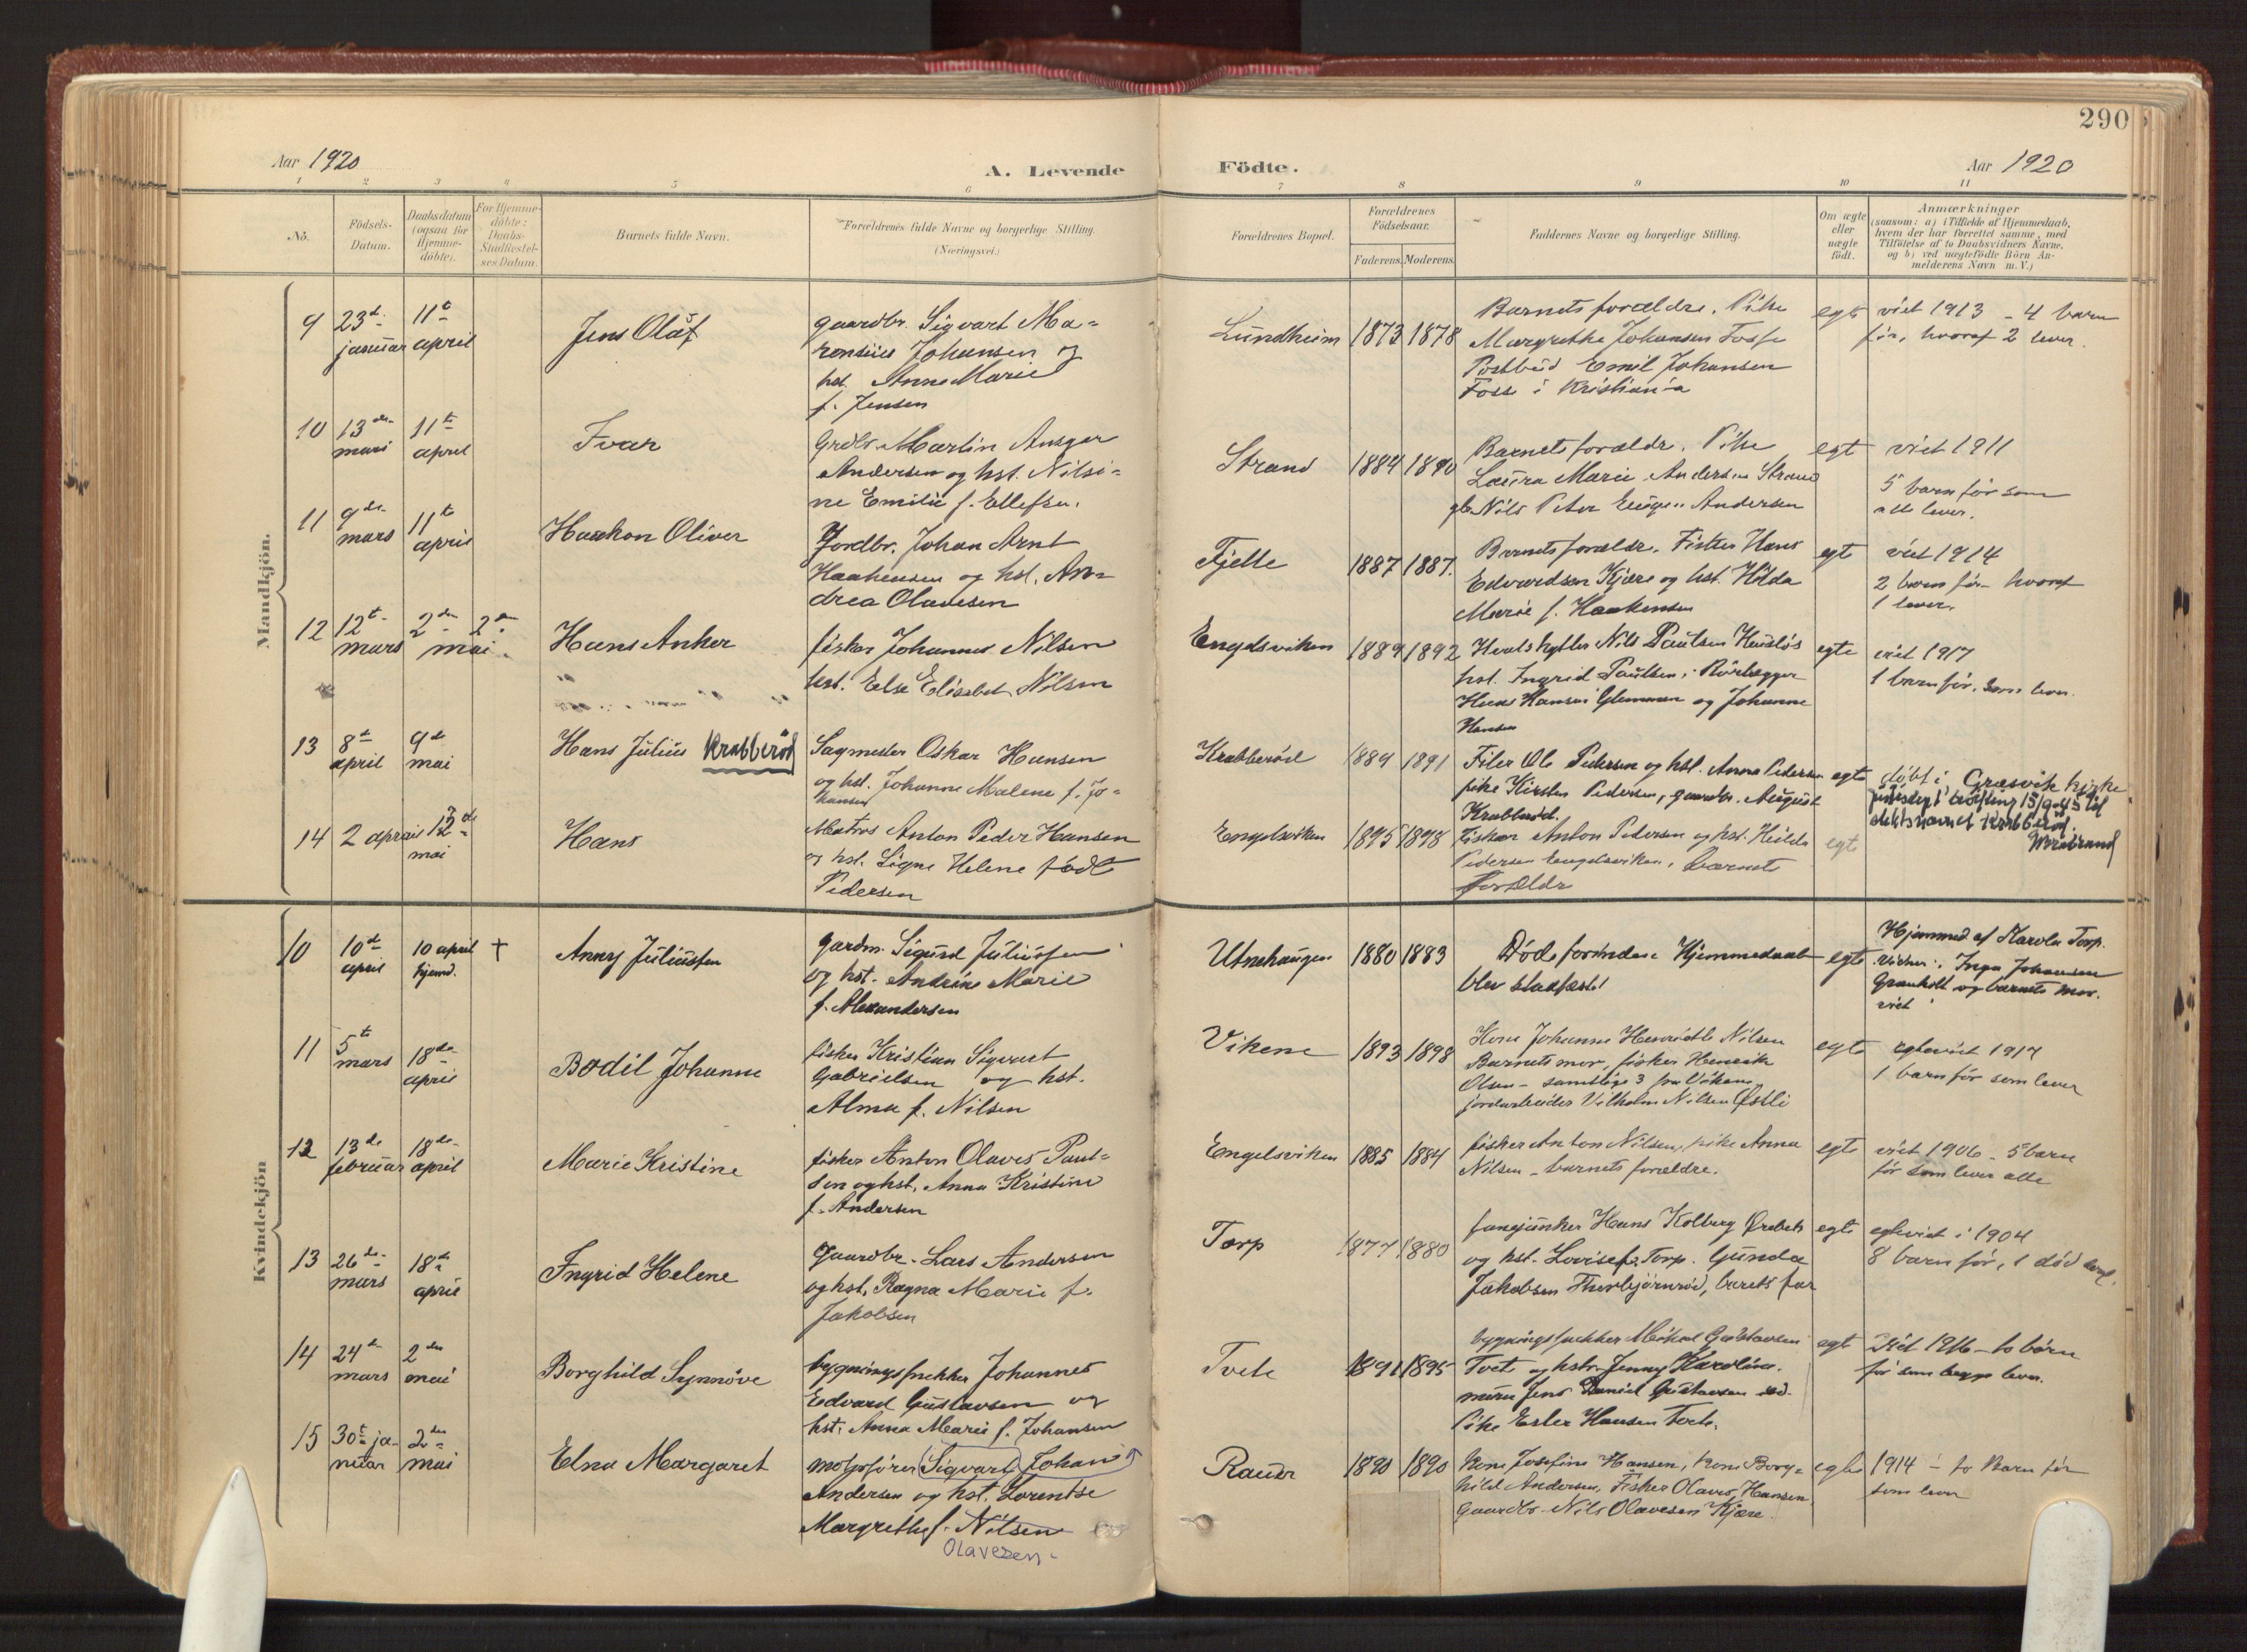 290
Aar 1920
A. Levende
Födte.
Aar 1920
1 2 3 4 5 6 7 8 9 10 11
No.
Födsels-
Datum.
Daabsdatum
(ogsaa for
Hjemme-
döbte).
For Hjemme-
döbte:
Daabs-
Stadfæstel-
ses Datum.
Barnets fulde Navn.
Forældrenes fulde Navne og borgerlige Stilling.
(Næringsvei.)
Forældrenes Bopæl.
Forældrenes
Födselsaar.
Faderens. Moderens.
Faddernes Navne og borgerlige Stilling.
Om ægte
eller
uægte
födt.
Anmærkninger
(saasom: a) i Tilfælde af Hjemmedaab,
hvem der har forrettet samme, med
Tilföielse af to Daabsvidners Navne,
og b) ved uægtefödte Börn An-
melderens Navn m. V.)
Mandkjön.
9
23de
januar
11te
april
Jens Olaf
gaardbr. Sigvart Ma-
rensius Johansen og
hst. Anne Marie
f. Jensen
Lundheim
1873 1878
Barnets forældre. Pike
Margrethe Johansen Fosse
Postbud Emil Johansen
Fosse i Kristiania
egte
viet 1913 - 4 barn
før, hvoraf 2 lever.
10
13de
mars
11te
april
Ivar
Grdbr. Martin Ansgar
Andersen og hst. Nilsi-
ne Emilie f. Ellefsen.
Strand
1884 1890
Barnets forældre. Pike
Laura Marie Andersen Strand
gb. Nils Peter Eugen Andersen
egt
viet 1911
5 barn før som
alle lever.
11
9de
mars
11te
april
Haakon Oliver
Jordbr. Johan Arnt
Haakensen og hst. An-
drea Olavesen
Fjelle
1887 1887.
Barnets forældre. Fisker Hans
Edvardsen Kjære og hst. Hilda
Marie f. Haakensen
egt
viet 1914
2 barn før hvoraf
1 lever.
12
12te
mars
2den
mai
2den
Hans Anker
fisker Johannes Nilsen
hst. Else Elisabet Nilsen
Engelsviken
1889 1892
Hvalskytter Nils Paulsen Husløs
hst. Ingrid Paulsen, Rørlægger
Hans Hansen Glemmen og Johanne
Hansen
egte
viet 1917
1 barn før, som lever.
13
8de
april
9de
mai
Hans Julius Krabberød
Sagmester Oskar Hansen
og hst. Johanne Malene f. Jo-
hansen
Krabberød
1889 1891
Filer Ole Pedersen og hst. Anna Pedersen
pike Kirsten Pedersen, gaardbr. August
Krabberød.
egte
døbt i Græsvik kirke
slektsnavnet Krabberød.
14
2 april
12de
mai
Hans
Matros Anton Peder Hansen
og hst. Signe Helene født
Pedersen
Engelsviken
1895 1898
Fisker Anton Pedersen og hst. Hilda
Pedersen Engelsviken, barnets
forældre
egte
Kvindekjön
10
10de
april
10 april
hjemd.
+
Anny Juliussen
gardm. Sigurd Juliussen
og hst. Andrine Marie
f. Alexandersen
Utnehaugen
1880 1883
Død forinden Hjemmedaab
blev stadfæstet
egte
Hjemmed. af Karola Torp.
Vidner: Inga Johansen
Granholt og barnets mor.
viet
11
5te
mars
18de
april
Bodil Johanne
fisker Kristian Sigvart
Gabrielsen og hst.
Alma f. Nilsen
Vikene
1893 1898
Kone Johanne Henriette Nilsen
Barnets mor, fisker Henrik
Olsen - samtlige 3 fra Vikene,
jordarbeider Vilhelm Nilsen Østli
egte
egteviet 1917
1 barn før som lever
12
13de
februar
18de
april
Marie Kristine
fisker Anton Olaves Paul-
sen og hst. Anna Kristine
f. Andersen
Engelsviken
1885 1884
fisker Anton Nilsen, pike Anna
Nilsen - barnets forældre.
egte
viet 1906 - 5 barn
før som lever alle
13
26de
mars
18de
april
Ingrid Helene
Gaardbr. Lars Andersen
og hst. Ragna Marie f.
Jakobsen
Torp
1877 1880
fanejunker Hans Kolberg Ørebek
og hst. Lovise f. Torp. Gunda
Jakobsen Thorbjørnrød, barnets far
egte
egteviet i 1904
8 barn før, 1 død
14
24de
mars
2den
mai
Borghild Synnøve
bygningssnekker Johannes
Edvard Gustavsen og
hst. Anna Marie f. Johansen
Tvete
1891 1895
bygningssnekker Mikal Gustavsen
Tvet og hstr. Jenny Karoline.
murer Jens Daniel Gustavsen
Pike Ester Hansen Tvete.
egt
Viet 1916 - to børn
før som begge lever.
15
30te ja-
nuar
2den
mai
Elna Margaret
motorfører Sigvart Johan
Andersen og hst. Lorentse
Margrethe f. Nilsen
Olavesen
Rauer
1890 1890
Kone Josefine Hansen, kone Borg-
hild Andersen, Fisker Olaves Hansen
Gaardbr. Nils Olavesen Kjære.
egte
1914 - to Barn før
som lever